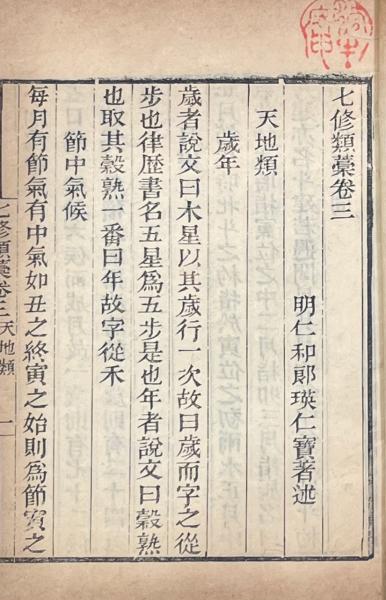 七修類藁卷三
明仁和郎瑛仁寶著述
天地類
歲年
歲者說文曰木星以其歲行一次故曰歲而字之從
步也律歷書名五星爲五步是也年者說文曰穀熟
也取其穀熟一番曰年故字從禾
節中氣候
每月有節氣有中氣如丑之終寅之始則爲節寅之
七修類藁卷三 天地類 一